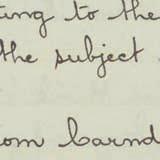 ting to the
the subject
om Carnd